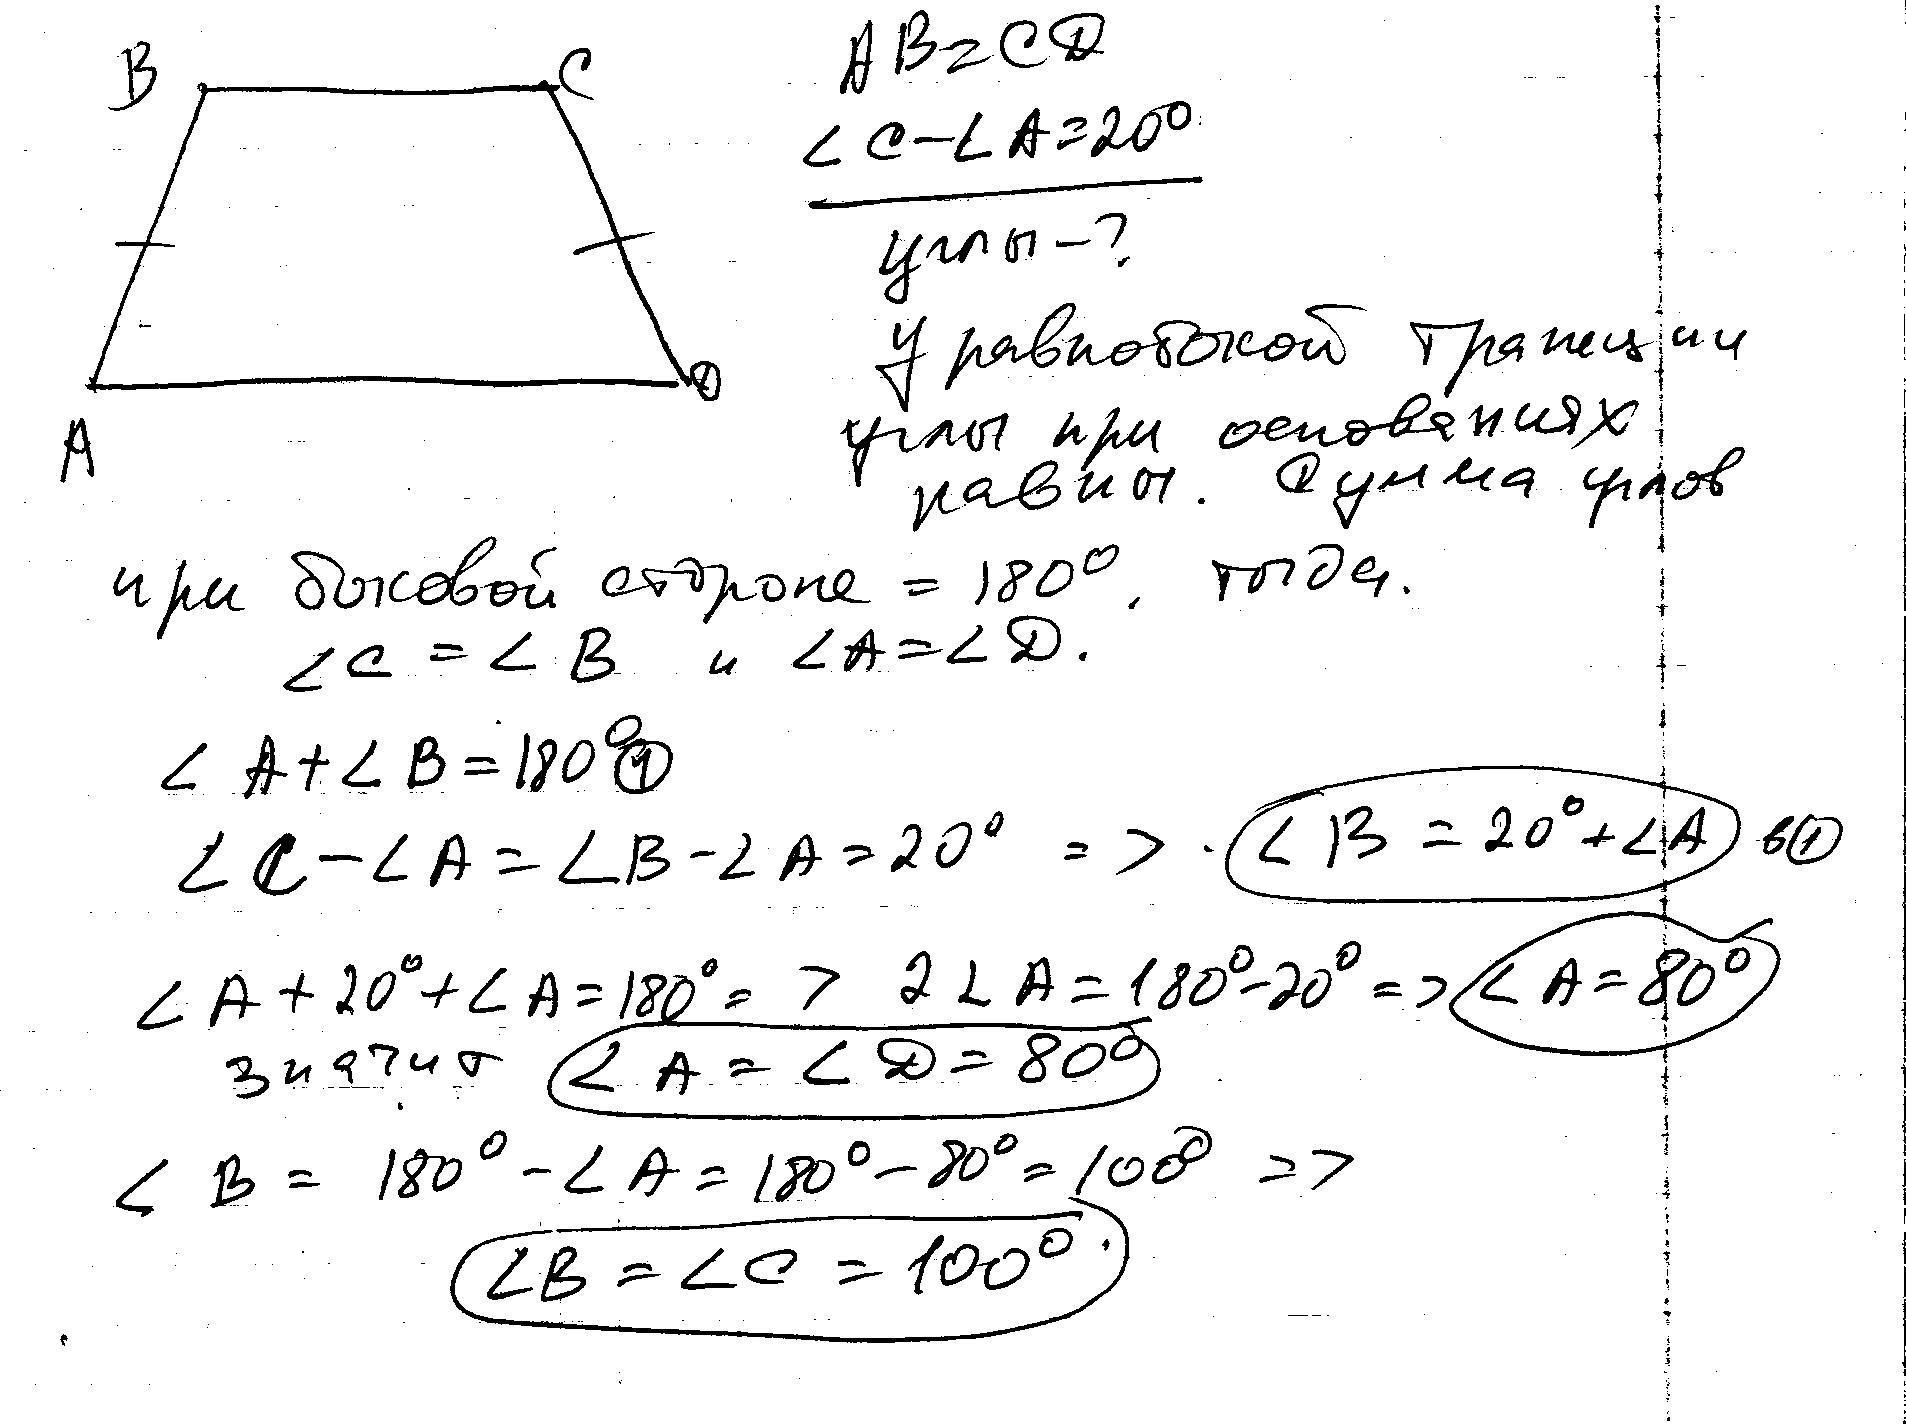 B
C
A
D
AB=CD
∠C-∠A=20°
углы-?
У равнобокой трапеции
углы при основаниях
равны. Сумма углов
при боковой стороне = 180°, тогда.
∠C = ∠B и ∠A=∠D.
∠A+∠B=180° ①
∠C-∠A=∠B-∠A=20° => ∠B=20°+∠A в ①
∠A+20°+∠A=180° => 2∠A=180°-20° => ∠A=80°
значит ∠A=∠D=80°
∠B = 180°-∠A=180°-80°=100° =>
∠B=∠C=100°.